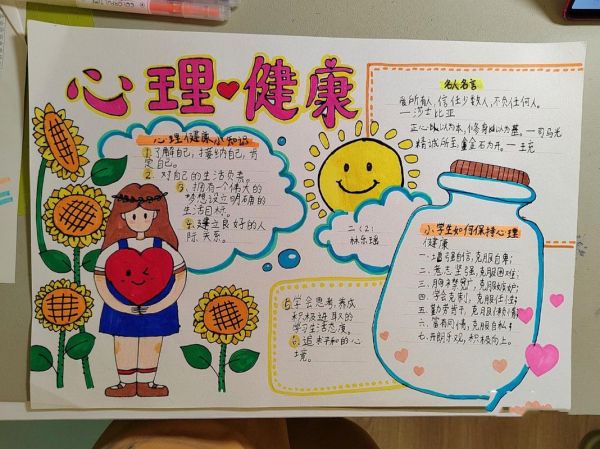 心理健康
心理健康小知识
1. 了解自己,接纳自己,肯
定自己。
2. 对自己的生活负责。
3. 拥有一个伟大的
梦想设立明确的
生活目标。
4. 建立良好的人
际关系。
5. 学会思考,养成
积极进取的
学习生活态度。
6. 追求平和的心
境。
二(2)
林乐瑶
名人名言
爱所有人,信任少数人,不负任何人。
——莎士比亚
正心以为本,修身以为基。——司马光
精诚所至,金石为开。——王充
小学生如何保持心理
健康
一.坚强自信,克服自卑;
二.意志坚强,克服困难;
三.胸襟宽广,克服嫉妒;
四.学会克制,克服任性;
五.勤劳苦干,克服
六.富有同情,克服自私
七.开朗乐观,积极向上。